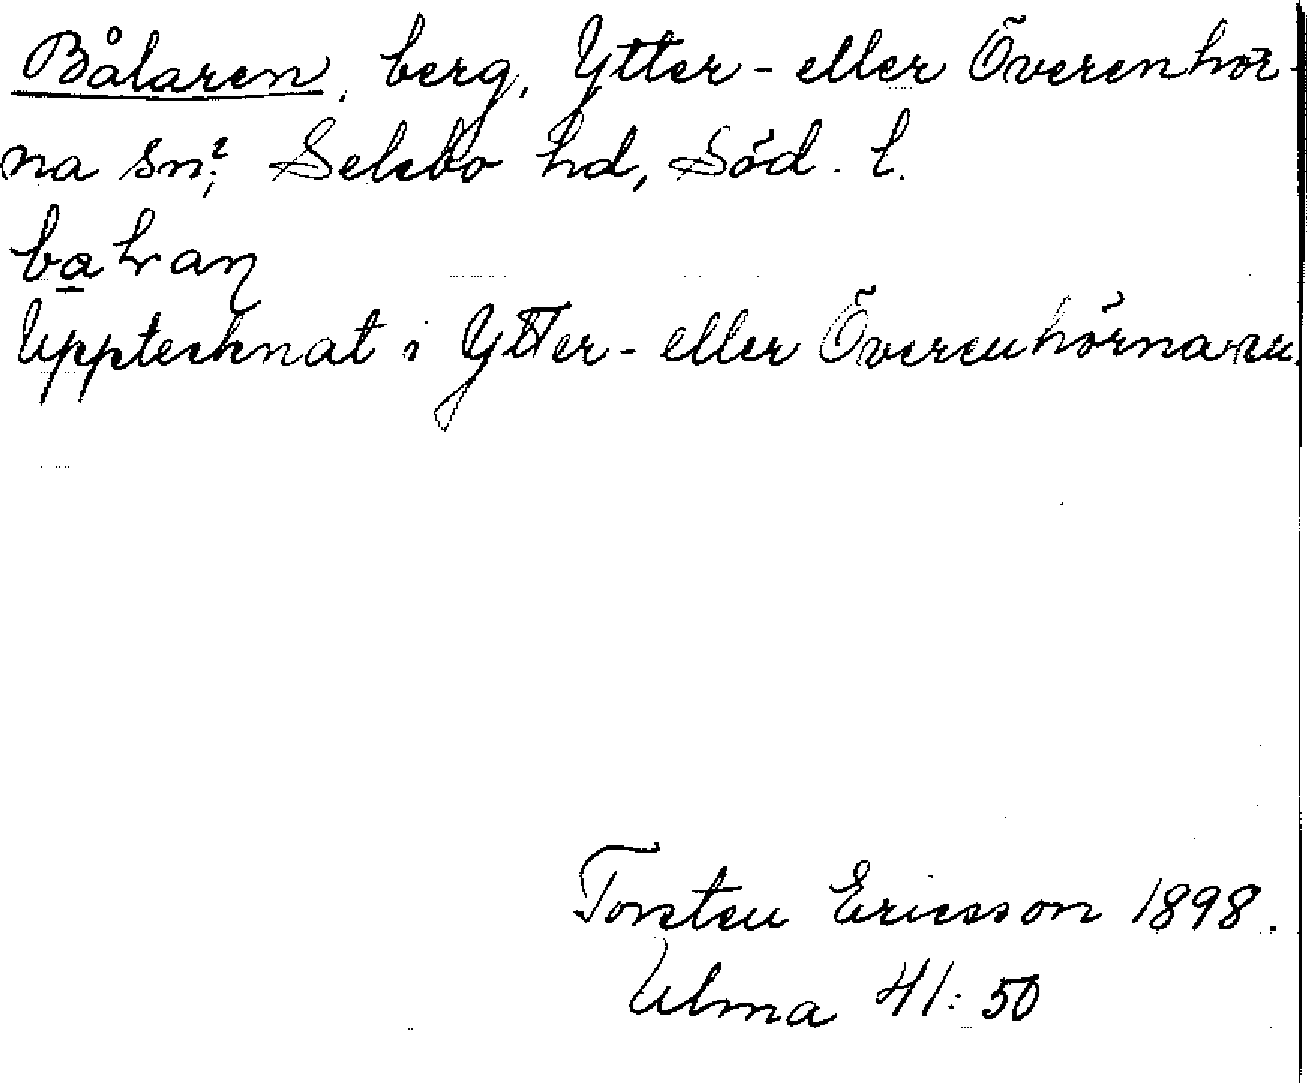 Bålaren, berg, Ytter- eller Överenhör-
na sn?, Selebo hd, Söd. l.
Upptecknat i Ytter- eller Överenhörna sn.
Torsten Ericsson 1898.
Ulma 41:50